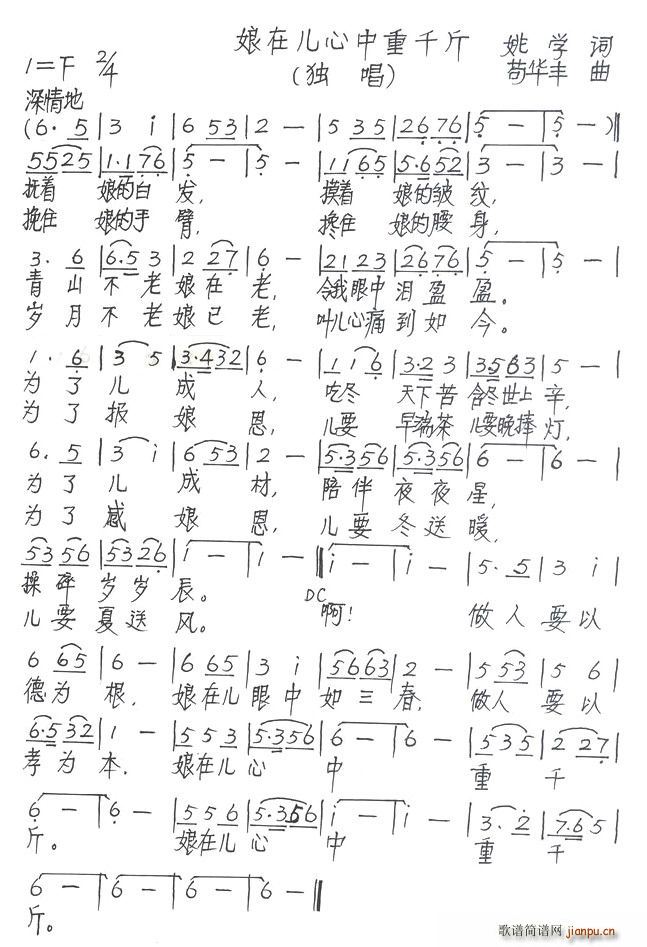 娘在儿心中重千斤 姚学 词
1=F 2/4 (独唱) 苟华丰 曲
深情地
(6. 5 | 3 i | 6 53 | 2 — | 5 35 | 26 76 | 5 — | 5 — )‖
5525 | 1·176 | 5 — | 5 — | 1165 | 5·652 | 3 — | 3 — |
抚着 娘的白发, 摸着 娘的皱纹,
挽住 娘的手臂, 搀住 娘的腰身,
3. 6 | 6·5 3 | 2 27 | 6 — | 21 23 | 26 76 | 5 — | 5 — |
青山不老娘在老, 令我眼中泪盈盈。
岁月不老娘已老, 叫儿心痛到如今。
1. 6 | 3 5 | 3·432 | 6 — | 11 6 | 3·2 3 | 3563 | 5 — |
为了儿成人, 吃冬 天下苦 含冬世上辛,
为了报娘恩, 儿要 早端茶 儿要晚捧灯,
6. 5 | 3 i | 6 53 | 2 — | 5·356 | 5·356 | 6 — | 6 — |
为了儿成材, 陪伴夜夜星,
为了感娘恩, 儿要冬送暖,
53 56 | 5326 | i — | i — ‖ i — | i — | 5. 5 | 3 i |
操碎岁岁辰。 DC 啊! 做人要以
儿要夏送风。
6 65 | 6 — | 6 65 | 3 i | 5663 | 2 — | 5 53 | 5 6 |
德为根, 娘在儿眼中如三春, 做人要以
6·532 | 1 — | 5 5 3 | 5·356 | 6 — | 6 — | 535 | 2 27 |
孝为本. 娘在儿心中重千
6 — | 6 — | 5 5 6 | 5·356 | i — | i — | 3. 2 | 7·6 5 |
斤。 娘在儿心中重千
6 — | 6 — | 6 — | 6 — ‖
斤。
歌谱简谱网
jianpu.cn